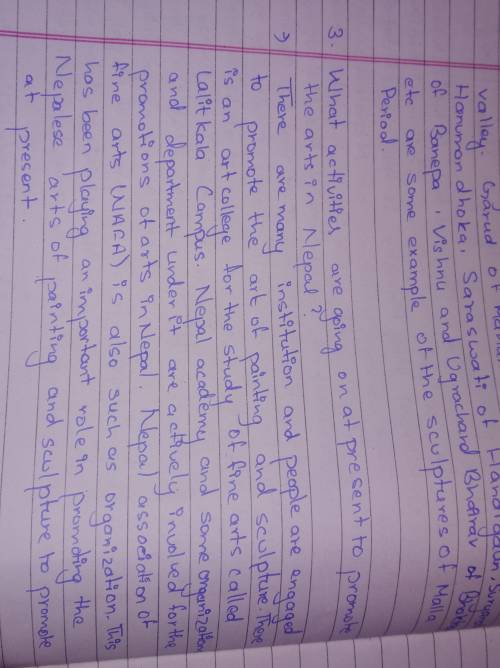 valley. Garud of
Hanumandhoka, Saraswati of
of Banepa, Vishnu and Ugrachand Bhairav of
etc are some example of the sculptures of Malla
Period.
3. What activities are going on at present to promote
the arts in Nepal?
→ There are many institution and people are engaged
to promote the art of painting and sculpture. There
is an art college for the study of fine arts called
Lalitkala Campus. Nepal academy and some organization
and department under it are actively involved for the
promotions of arts in Nepal. Nepal association of
fine arts (NAFA) is also such as organization. This
has been playing an important role in promoting the
Nepalese arts of painting and sculpture to promote
at present.